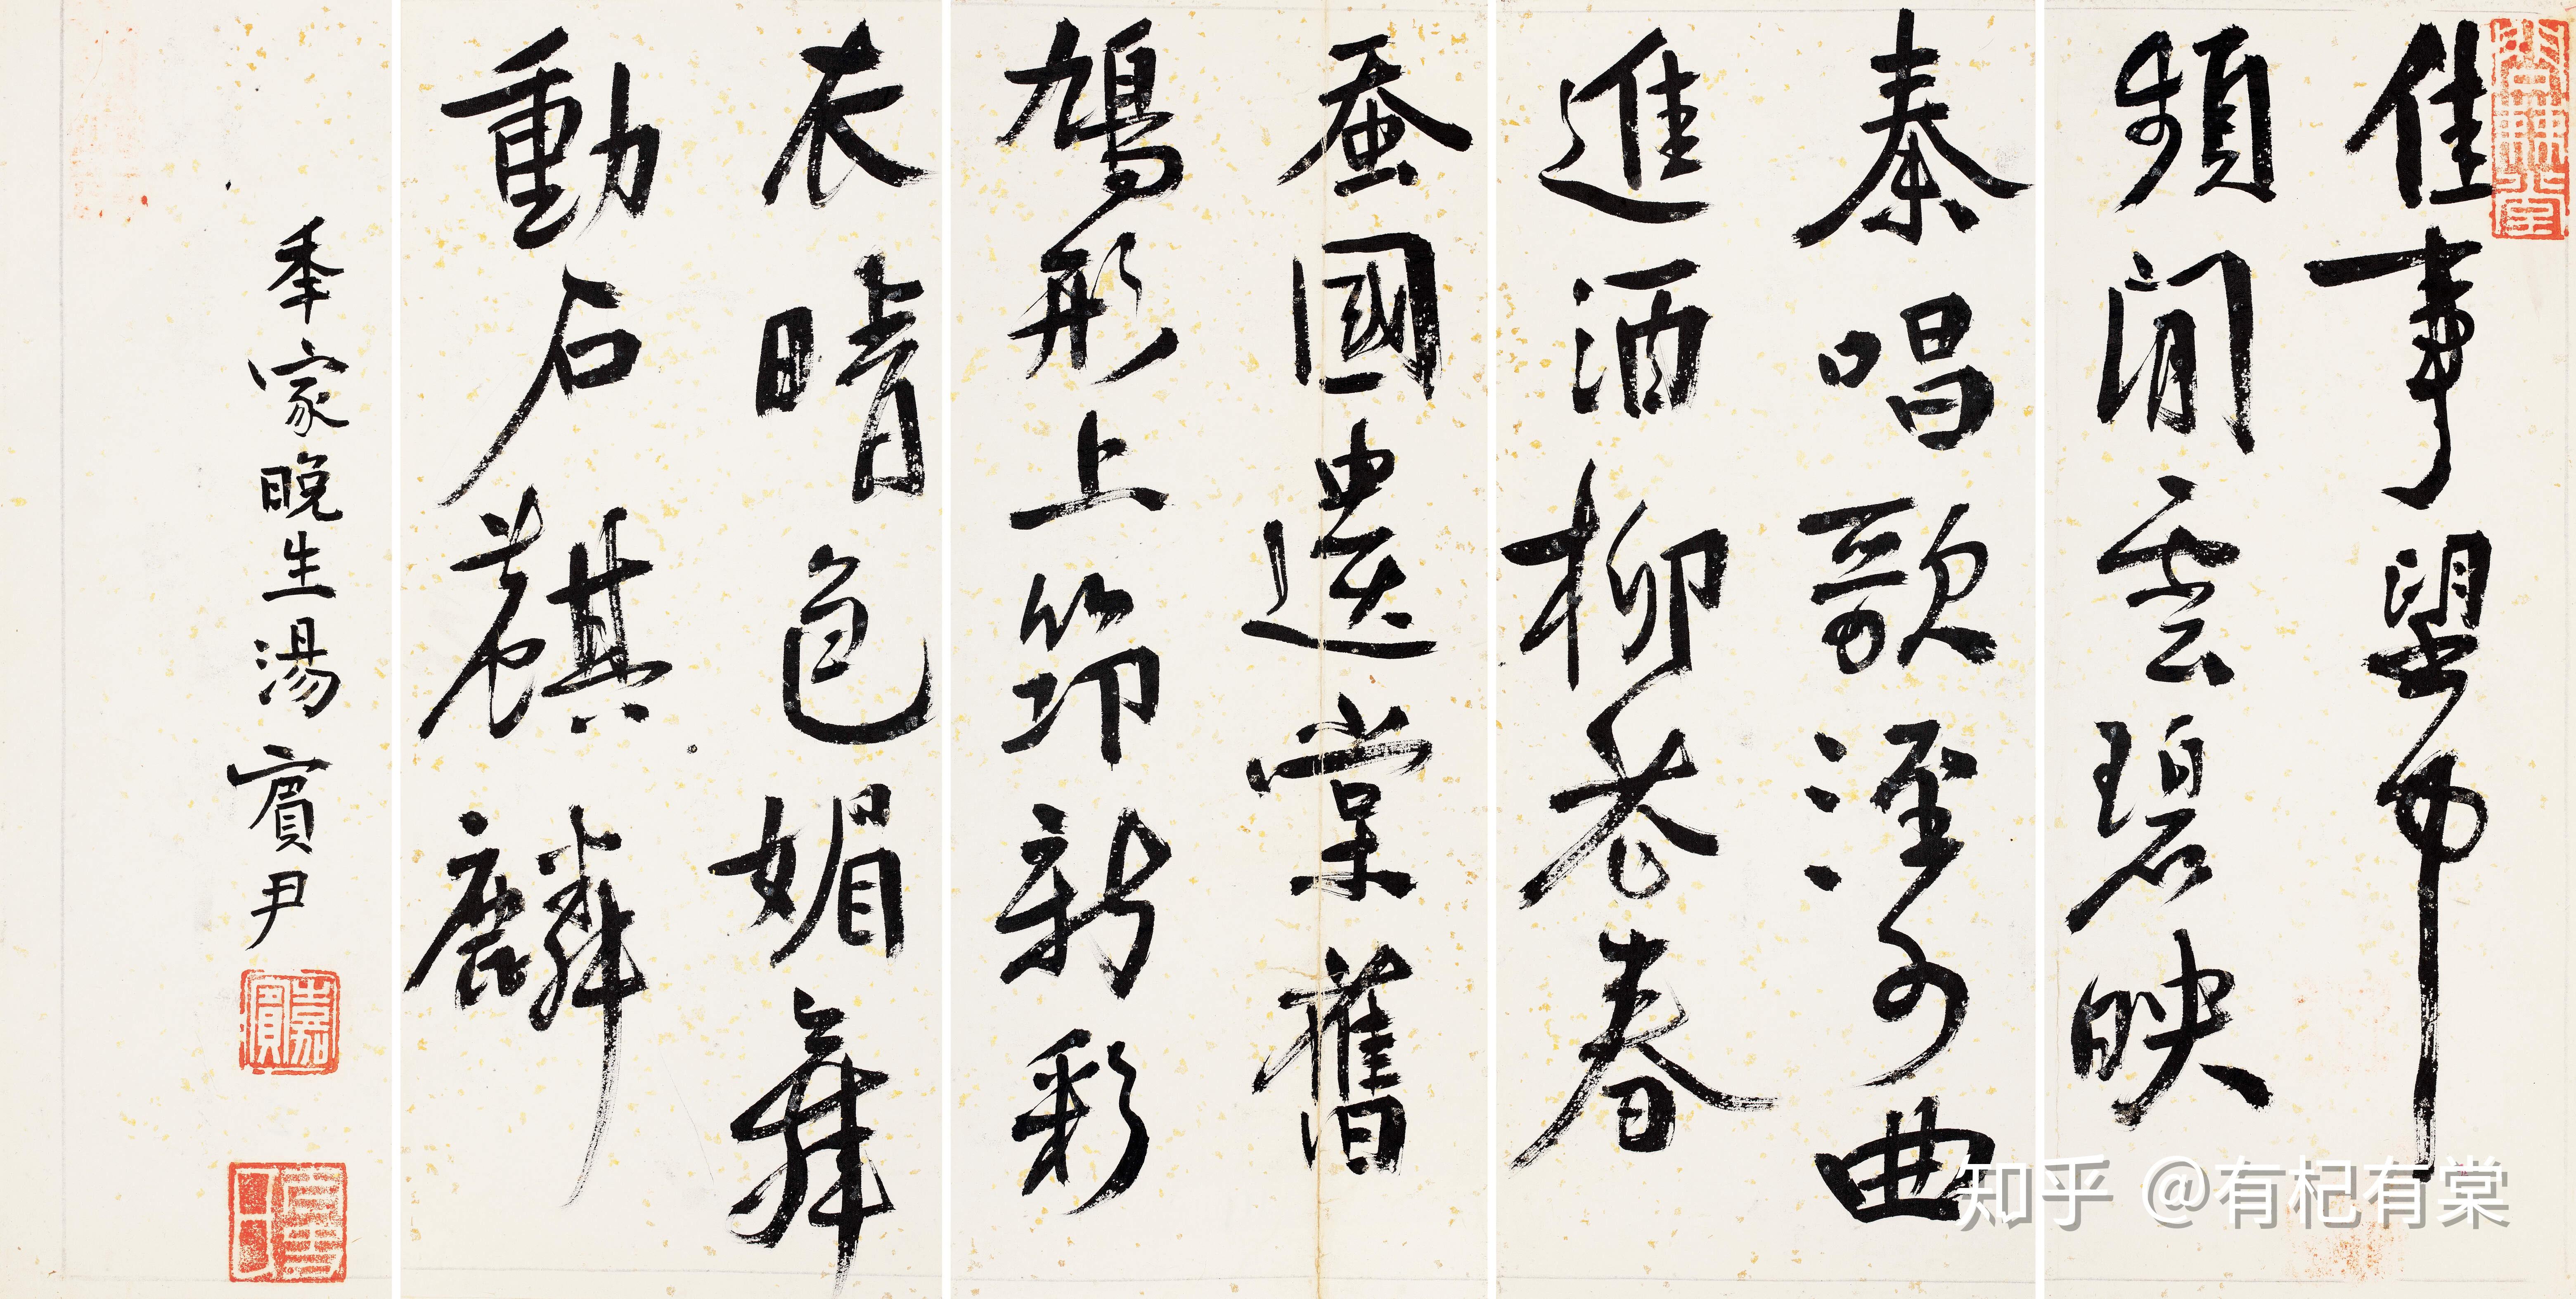 佳事
頻閒雲碧映
秦唱歌涇曲
進酒柳巷春
蚕國遺棠舊
鳩形上筇新彩
衣晴色媚舞
動石麒麟
年家晚生湯賓尹
嘉賓
知乎 @有杞有棠